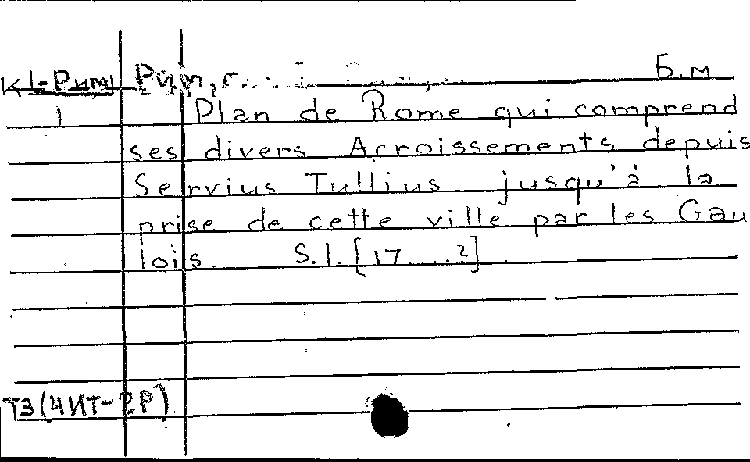 К1-Рим Рим, г. Б.м
1 Plan de Rome qui comprend
ses divers Acroissements depuis
Servius Tullius jusqu'à la
prise de cette ville par les Gau
lois. S.l. [17....?]
ТЗ(4ИТ-2Р)